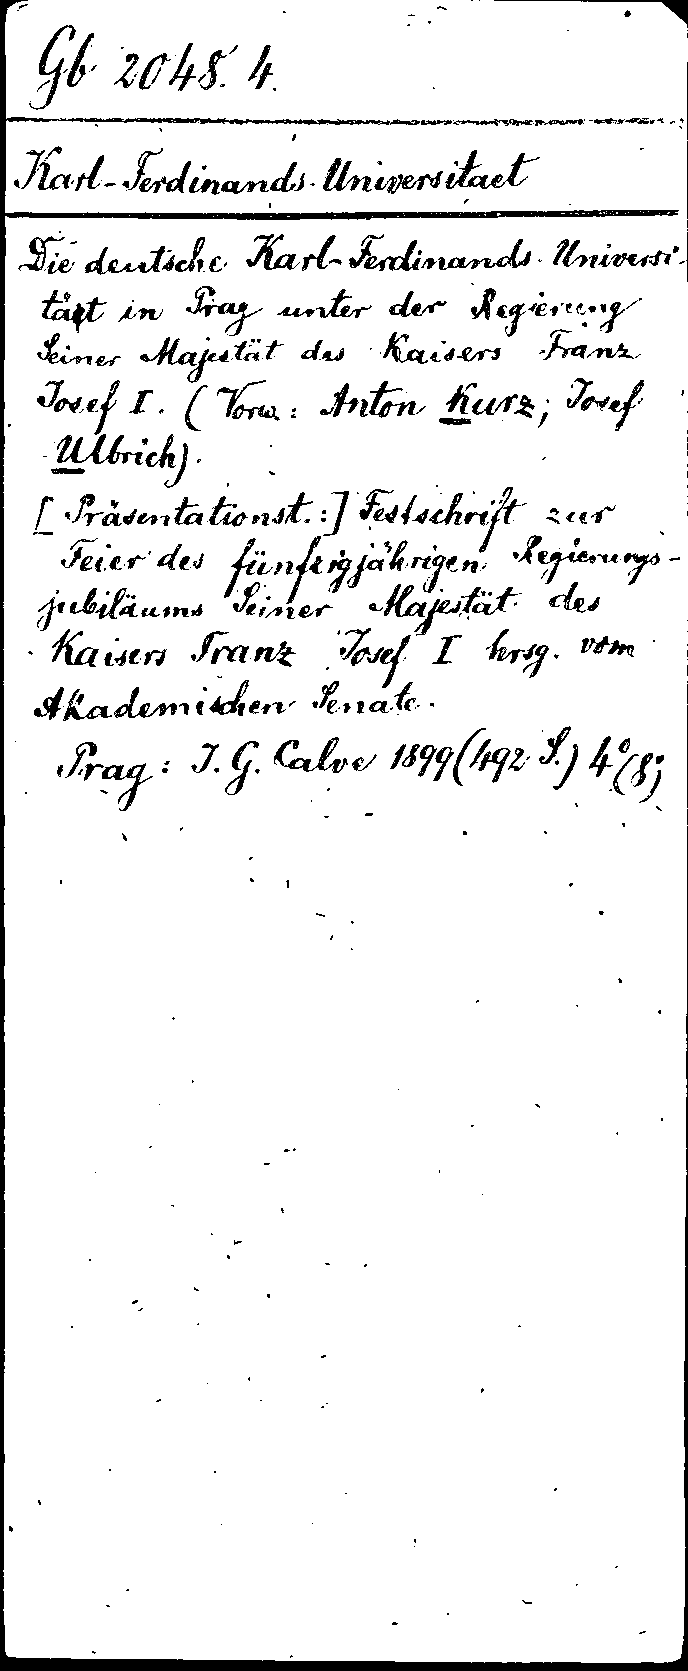 Gb 2048. 4.
Karl-Ferdinands-Universitaet
Die deutsche Karl-Ferdinands-Universi-
tät in Prag unter der Regierung
Seiner Majestät des Kaisers Franz
Josef I. (Vorw.: Anton Kurz; Josef
Ulbrich).
[Präsentationst.:] Festschrift zur
Feier des fünfzigjährigen Regierungs-
jubiläums Seiner Majestät des
Kaisers Franz Josef I hrsg. vom
Akademischen Senate.
Prag: J. G. Calve 1899 (492 S.) 4° (8°)